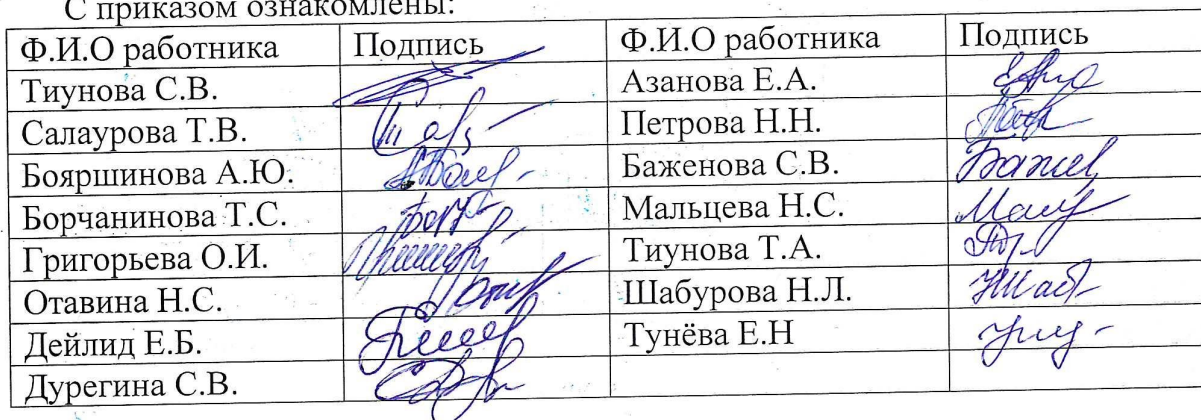 С приказом ознакомлены:
Ф.И.О работника Подпись Ф.И.О работника Подпись
Тиунова С.В. Азанова Е.А.
Салаурова Т.В. Петрова Н.Н.
Бояршинова А.Ю. Баженова С.В.
Борчанинова Т.С. Мальцева Н.С.
Григорьева О.И. Тиунова Т.А.
Отавина Н.С. Шабурова Н.Л.
Дейлид Е.Б. Тунёва Е.Н
Дурегина С.В.